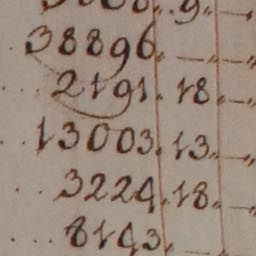 38896. — „ — „
2191. 18. — „
13003. 13. — „
3224. 18. — „
8143. — „ — „